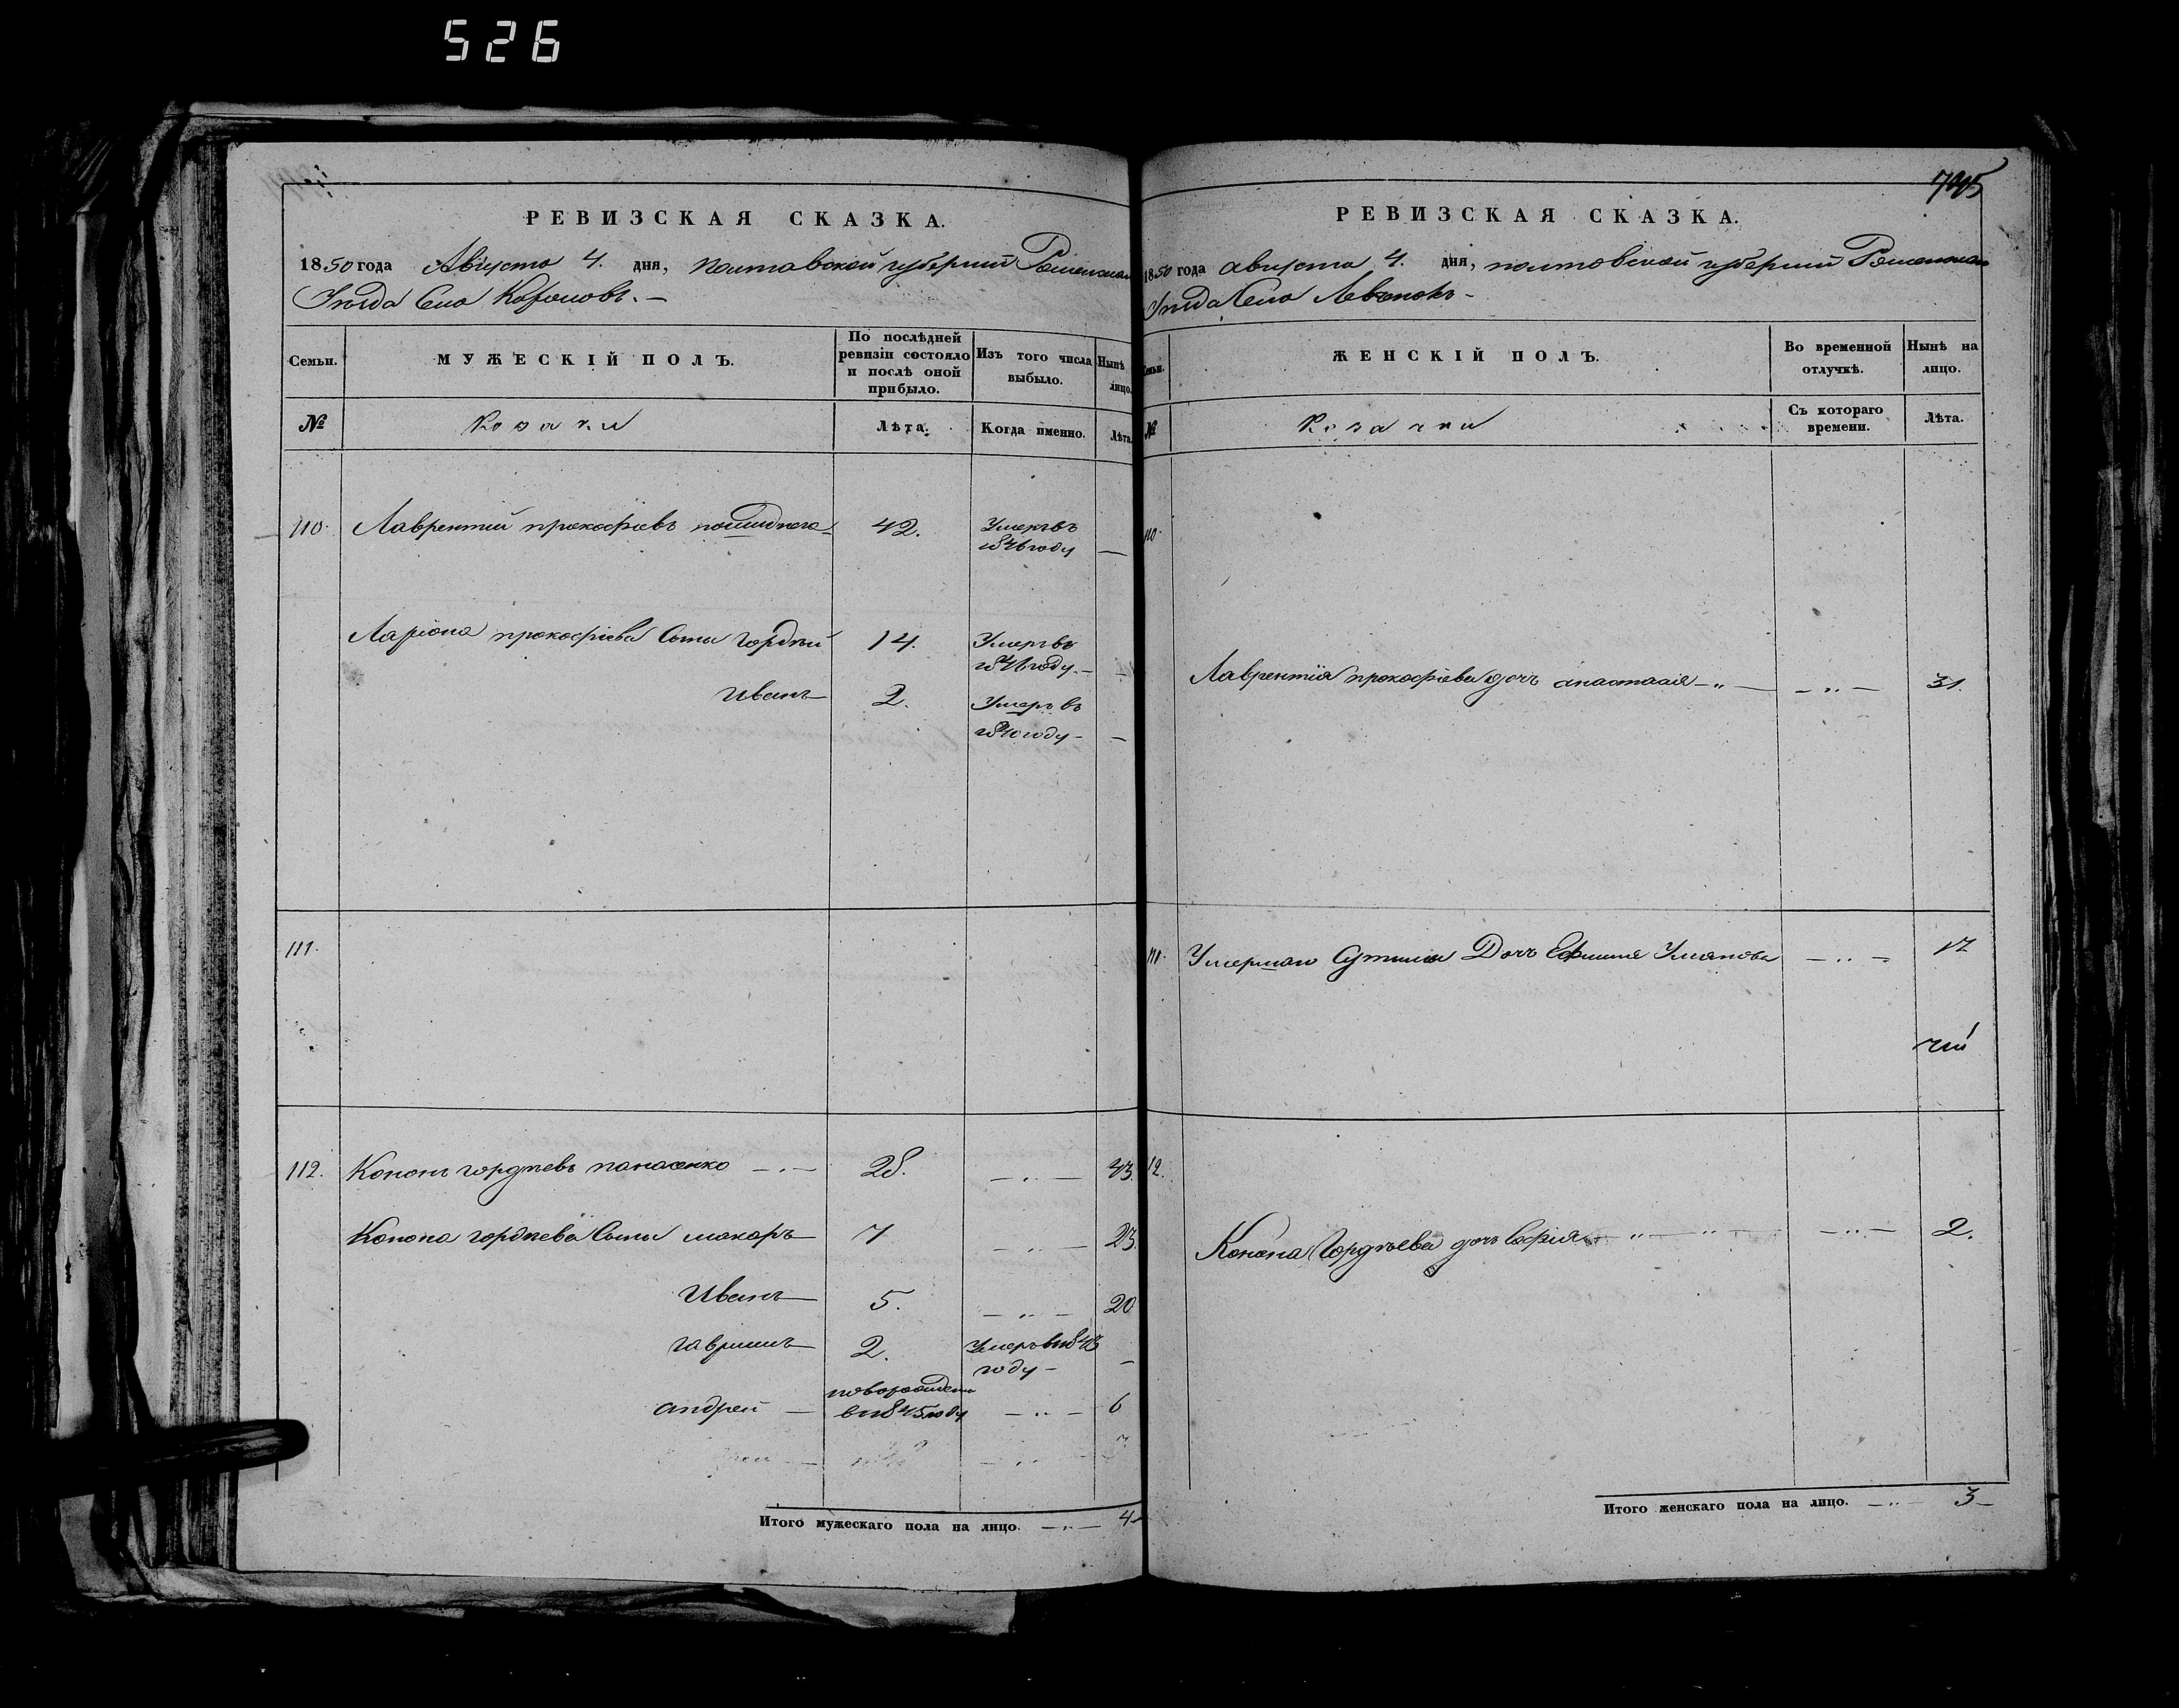 526
РЕВИЗСКАЯ СКАЗКА.
1850 года Августа 4. дня, Полтавской губернии Роменскаго
Уезда Села
Семьи. МУЖЕСКІЙ ПОЛЪ. По послѣдней ревизіи состояло и послѣ оной прибыло. Изъ того числа выбыло. Нынѣ лицо.
№ Козаки Лѣта. Когда именно. Лѣта.
110. Лаврентий прокофіевъ 42. Умеръ въ
1846 году —
Лариона прокофіева Сыны гордѣй 14. Умеръ въ
году. —
Иванъ 2. Умеръ въ
1840 году —
111.
112. Кононъ гордѣевъ панасенко 28. — „ — 43.
Конона гордѣева Сыны макаръ 7 — „ — 23.
Иванъ 5. — „ — 20
гавриилъ 2. Умеръ въ
году — –
андрей — новорожденъ
въ 1845 году — „ — 6
Итого мужескаго пола на лицо. — „ — 4
РЕВИЗСКАЯ СКАЗКА.
1850 года августа 4. дня, полтовской губернии Роменскаго
Уезда Села
Семьи. ЖЕНСКІЙ ПОЛЪ. Во временной отлучкѣ. Нынѣ на лицо.
№ Козачки Съ котораго времени. Лѣта.
110.
Лаврентія прокофіева дочь анастасія — „ — — „ — 31.
111. Дочь — „ — 17
112.
Конона Гордѣева дочь Софія — „ — „ — — „ — 2.
Итого женскаго пола на лицо. — „ — 3 —